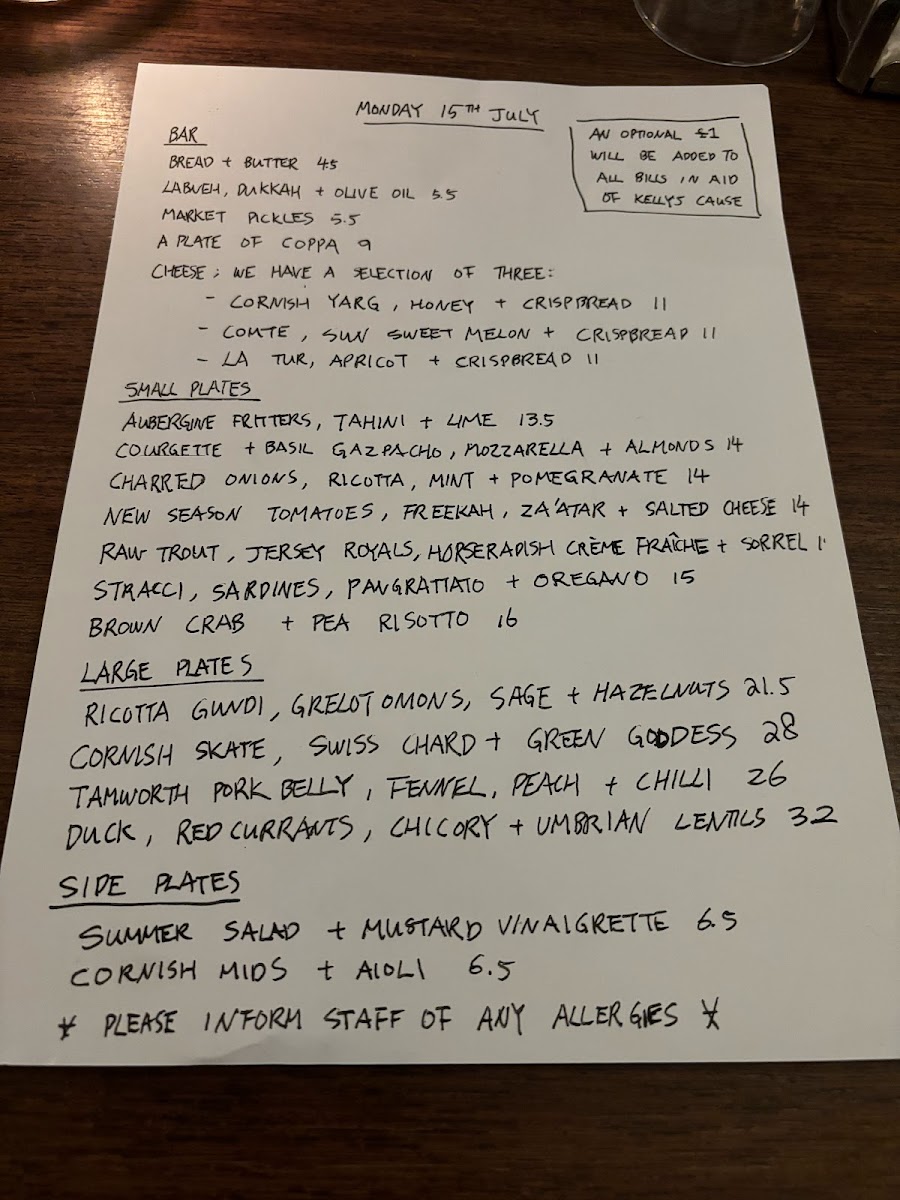 MONDAY 15TH JULY
AN OPTIONAL £1
WILL BE ADDED TO
ALL BILLS IN AID
OF KELLYS CAUSE
BAR
BREAD + BUTTER 45
LABNEH, DUKKAH + OLIVE OIL 5.5
MARKET PICKLES 5.5
A PLATE OF COPPA 9
CHEESE; WE HAVE A SELECTION OF THREE:
- CORNISH YARG, HONEY + CRISPBREAD 11
- COMTE, SUN SWEET MELON + CRISPBREAD 11
- LA TUR, APRICOT + CRISPBREAD 11
SMALL PLATES
AUBERGINE FRITTERS, TAHINI + LIME 13.5
COURGETTE + BASIL GAZPACHO, MOZZARELLA + ALMONDS 14
CHARRED ONIONS, RICOTTA, MINT + POMEGRANATE 14
NEW SEASON TOMATOES, FREEKAH, ZA'ATAR + SALTED CHEESE 14
RAW TROUT, JERSEY ROYALS, HORSERADISH CRÈME FRAÎCHE + SORREL
STRACCI, SARDINES, PANGRATTATO + OREGANO 15
BROWN CRAB + PEA RISOTTO 16
LARGE PLATES
RICOTTA GNUDI, GRELOT ONIONS, SAGE + HAZELNUTS 21.5
CORNISH SKATE, SWISS CHARD + GREEN GODDESS 28
TAMWORTH PORK BELLY, FENNEL, PEACH + CHILLI 26
DUCK, RED CURRANTS, CHICORY + UMBRIAN LENTILS 32
SIDE PLATES
SUMMER SALAD + MUSTARD VINAIGRETTE 6.5
CORNISH MIDS + AIOLI 6.5
* PLEASE INFORM STAFF OF ANY ALLERGIES *